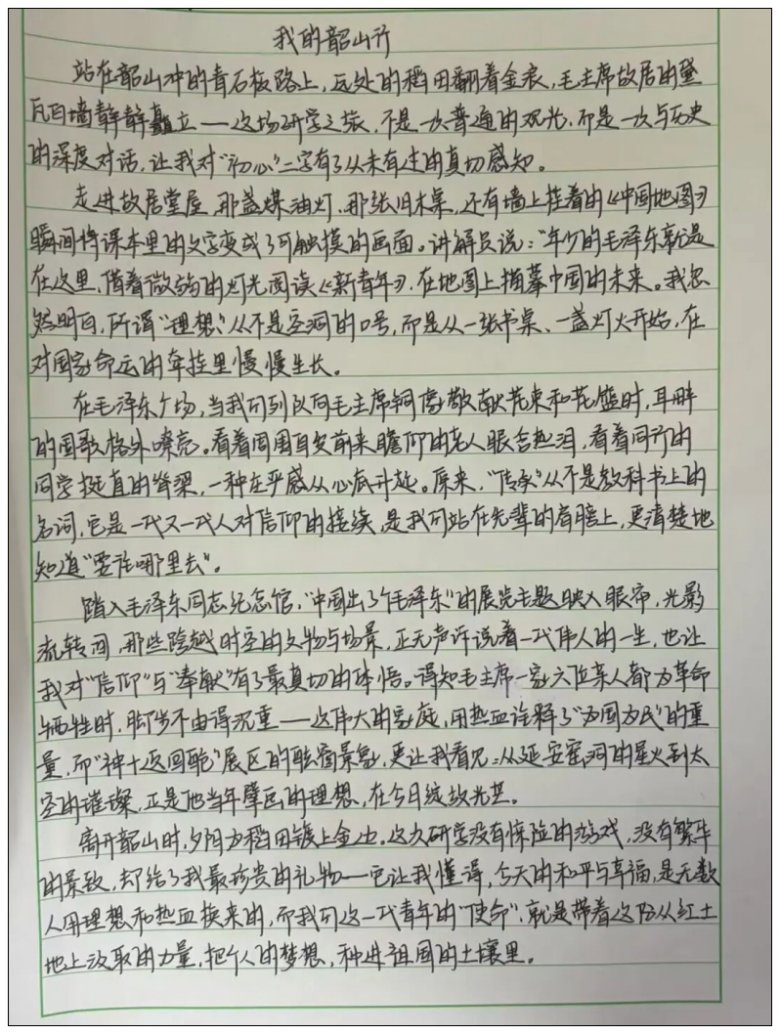 我的韶山行
站在韶山冲的青石板路上，远处的稻田翻着金浪，毛主席故居的黛
瓦白墙静静矗立——这场研学之旅，不是一次普通的观光，而是一次与历史
的深度对话，让我对“初心”二字有了从未有过的真切感知。
走进故居堂屋，那盏煤油灯、那张旧木桌，还有墙上挂着的《中国地图》，
瞬间将课本里的文字变成了可触摸的画面。讲解员说：“年少的毛泽东就是
在这里，借着微弱的灯光阅读《新青年》，在地图上描摹中国的未来。我忽
然明白，所谓“理想”，从不是空洞的口号，而是从一张书桌、一盏灯火开始，在
对国家命运的牵挂里慢慢生长。
在毛泽东广场，当我们列队向毛主席铜像敬献花束和花篮时，耳畔
的国歌格外嘹亮。看着周围自发前来瞻仰的老人眼含热泪，看着同行的
同学挺直的脊梁，一种庄严感从心底升起。原来，“传承”从不是教科书上的
名词，它是一代又一代人对信仰的接续，是我们站在先辈的肩膀上，更清楚地
知道“要往哪里去”。
踏入毛泽东同志纪念馆，“中国出了个毛泽东”的展览主题映入眼帘，光影
流转间，那些跨越时空的文物与场景，正无声诉说着一代伟人的一生，也让
我对“信仰”与“奉献”有了最真切的体悟。得知毛主席一家六位亲人都为革命
牺牲时，脚步不由得沉重——这伟大的家庭，用热血诠释了“为国为民”的重
量，而“神十返回舱”展区的联窗景象，更让我看见：从延安窑洞的星火到太
空的璀璨，正是他当年擘画的理想，在今日绽放光芒。
离开韶山时，夕阳为稻田镀上金边。这次研学没有惊险的游戏，没有繁华
的景致，却给了我最珍贵的礼物——它让我懂得，今天的和平与幸福，是无数
人用理想和热血换来的，而我们这一代青年的“使命”，就是带着这份从红土
地上汲取的力量，把个人的梦想，种进祖国的土壤里。